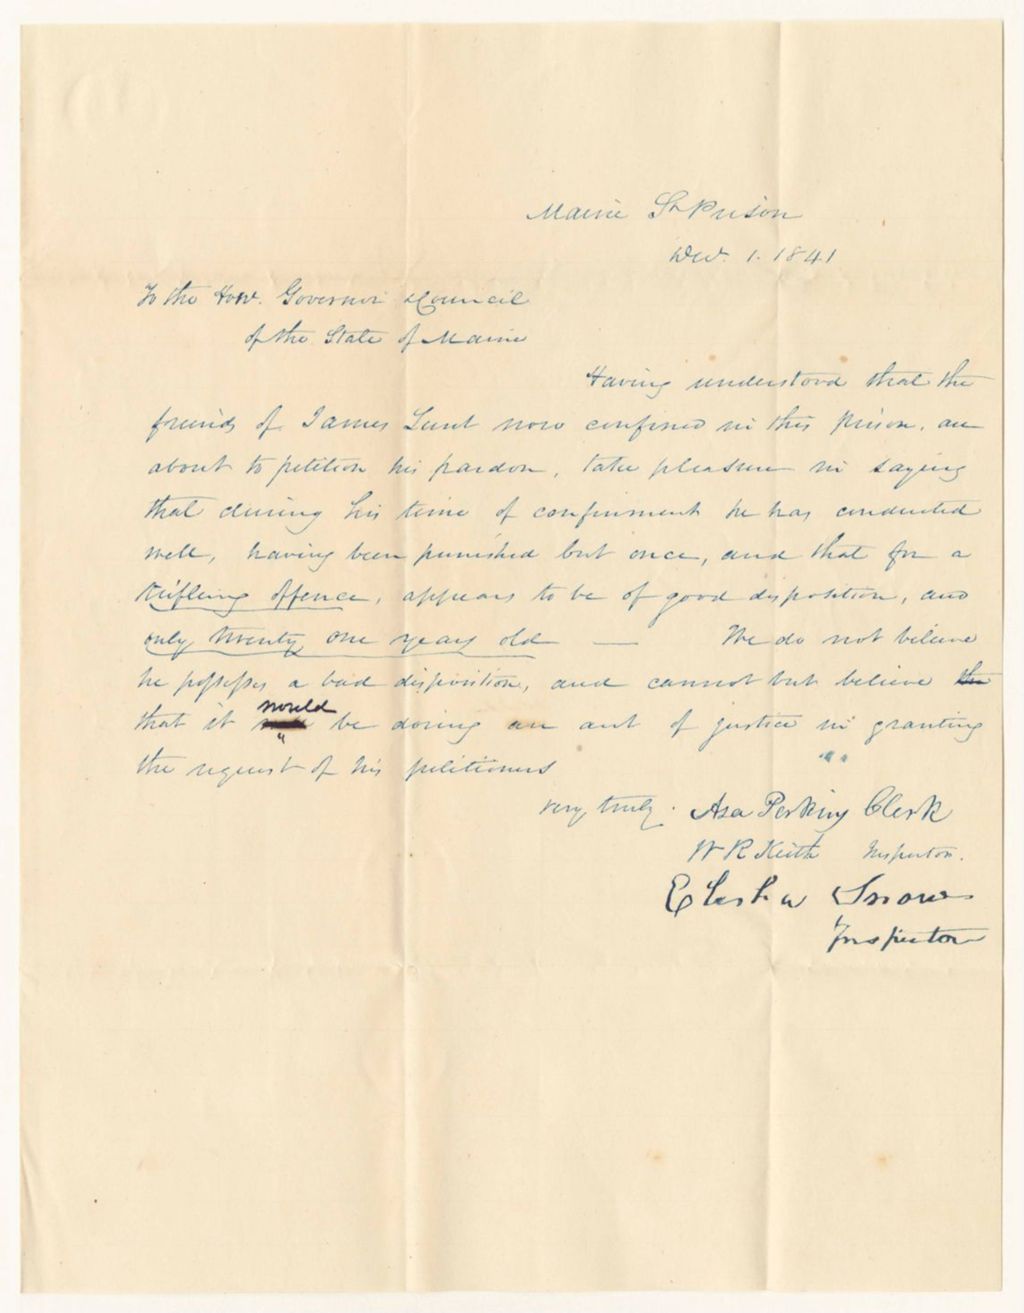 Maine St Prison
Dec. 1. 1841
To the Hon. Governor & Council
of the State of Maine
Having understood that the
friends of James Lunt now confined in this Prison, are
about to petition his pardon, take pleasure in saying
that during his time of confinement he has conducted
well, having been punished but once, and that for a
trifleing offence, appears to be of good disposition, and
only twenty one years old — We do not believe
he possesses a bad disposition, and cannot but believe the
that it would be doing an act of justice in granting
the request of his petitioners
very truly. Asa Perkins Clerk
W R Keith Inspector.
Elisha Snow
Inspector